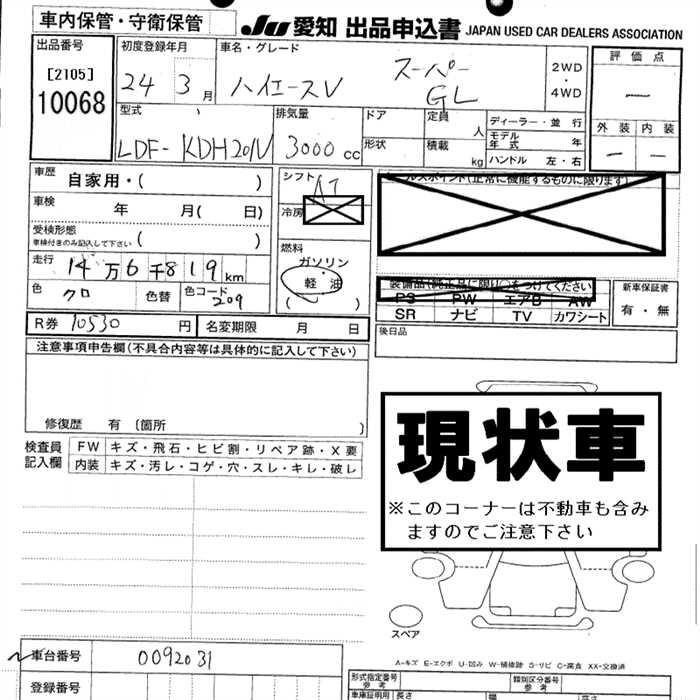 車内保管・守衛保管
JU 愛知 出品申込書 JAPAN USED CAR DEALERS ASSOCIATION
出品番号
[2105]
10068
初度登録年月
24 3月
車名・グレード
ハイエースV スーパーGL
2WD・4WD
評価点
—
外装 内装
— —
型式
LDF- KDH201V
排気量
3000cc
ドア
形状
定員 人
積載 kg
ディーラー・並行
モデル年式 年
ハンドル 左・右
車歴 自家用・( )
車検 年 月( 日)
受検形態
車検付きのみ記入して下さい ( )
走行 14万6千819km
色 クロ 色替 色コード 209
シフト AT
冷房
燃料
ガソリン
軽・油
( )
セールスポイント(正常に機能するものに限ります)
装備品(純正品に限り○をつけてください)
PS PW エアB AW
SR ナビ TV カワシート
新車保証書
有・無
R券 10530円 名変期限 月 日
後日品
注意事項申告欄(不具合内容等は具体的に記入して下さい)
修復歴 有 〔箇所 〕
検査員記入欄
FW キズ・飛石・ヒビ割・リペア跡・X要
内装 キズ・汚レ・コゲ・穴・スレ・キレ・破レ
現状車
※このコーナーは不動車も含み
ますのでご注意下さい
スペア
A-キズ E-エクボ U-凹み W-補修跡 S-サビ C-腐食 XX-交換済
車台番号 0092031
登録番号
形式指定番号
参考
類別区分番号
参考
車庫証明用
参考
長さ
幅
高さ